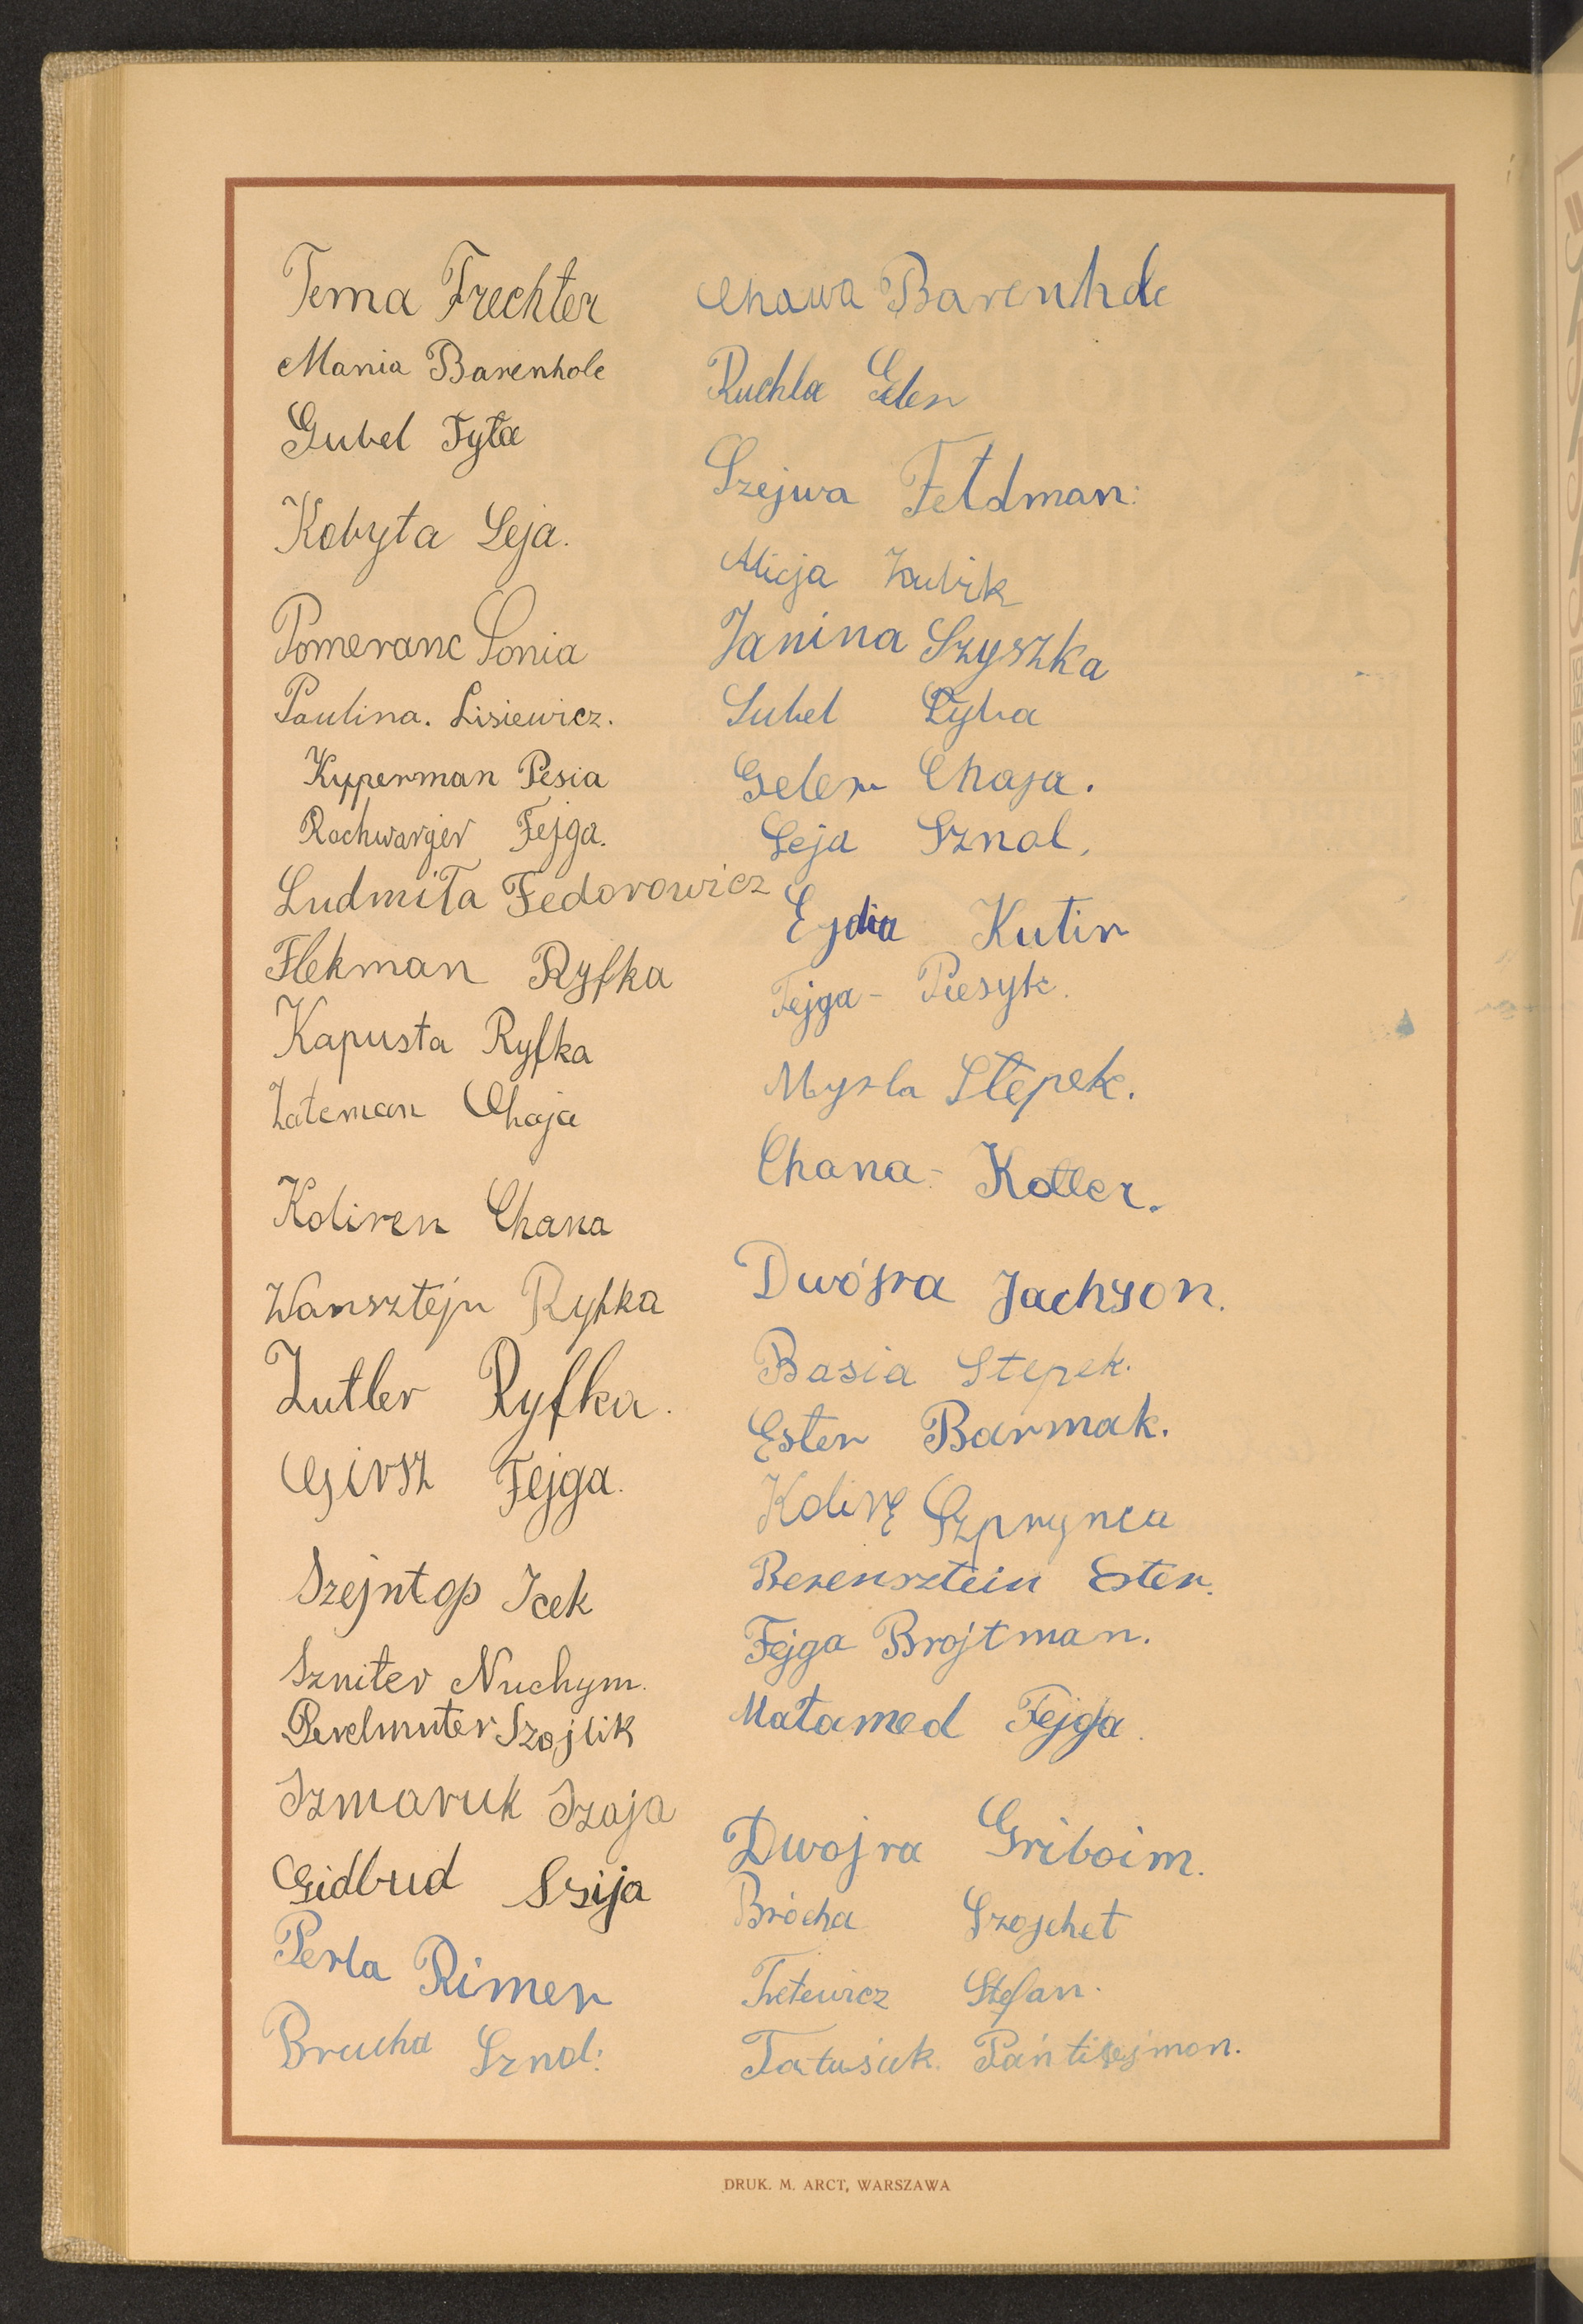 Tema Frechter
Mania Barenholc
Gubel Tyla
Kobyła Leja.
Pomeranc Sonia
Paulina. Lisiewicz.
Kypperman Pesia
Rochwarger Fejga.
Ludmiła Fedorowicz
Flekman Ryfka
Kapusta Ryfka
Zateman Chaja
Koliren Chana
Wansztejn Ryfka
Lutler Ryfka.
Girsz Fejga.
Szejntop Icek
Szniter Nuchym.
Perelmuter Szojlik
Szmaruk Szaja
Gidbud Szija
Perla Rimer
Brucha Sznol:
Chawa Barenholc
Ruchla Gelen
Szejwa Feldman:
Alicja Zubik
Janina Szyszka
Lubel Ryba
Gelen Chaja.
Leja Sznol.
Eydia Kutin
Fejga - Piesyk.
Mysla Stepek.
Chana - Kotler.
Dwójra Jachson.
Basia Stepek.
Ester Barmak.
Szprynca
Berensztein Ester.
Fejga Brojtman.
Małamed Fejga.
Dwojra Griboim.
Brócha Szojchet
Stefan.
Tatusiuk.
DRUK. M. ARCT, WARSZAWA